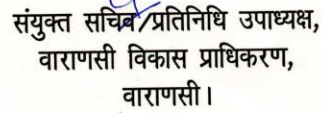 संयुक्त सचिव/प्रतिनिधि उपाध्यक्ष,
वाराणसी विकास प्राधिकरण,
वाराणसी।